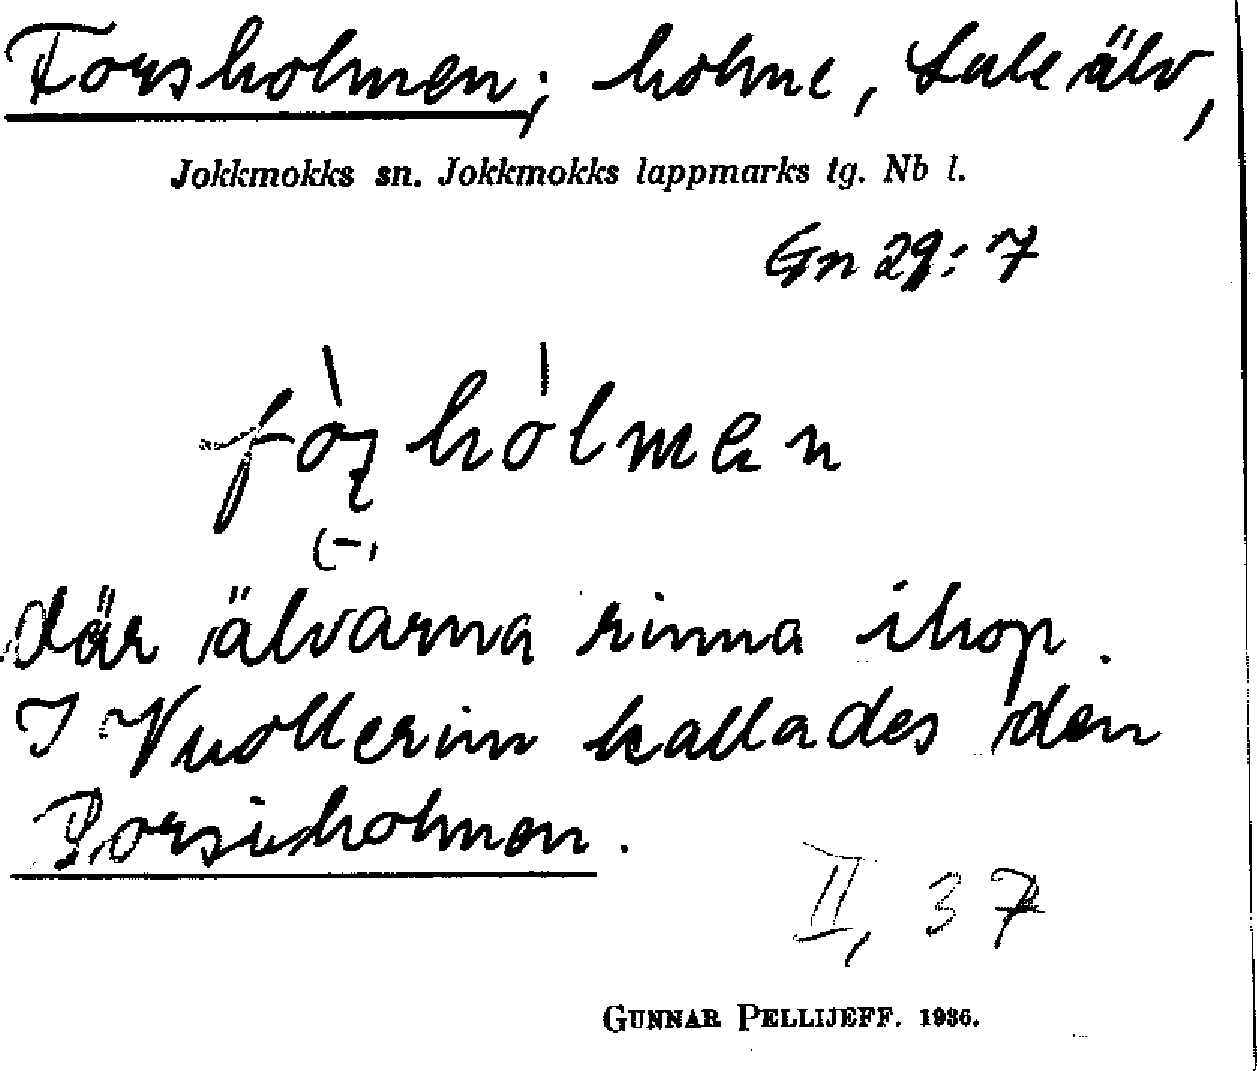 Forsholmen; holme, Lule älv,
Jokkmokks sn. Jokkmokks lappmarks tg. Nb l.
Gn 29:7
där älvarna rinna ihop.
I Vuollerim kallades den
Porsiholmen.
II, 37
GUNNAR PELLIJEFF. 1936.